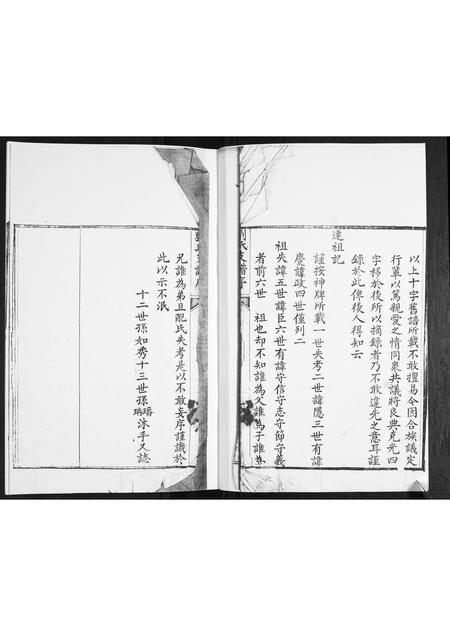 以上十字舊譜所載不敢擅易今因合族議定
行輩以篤親愛之情同衆共議將良典克光四
字移於後所以摘錄者乃不敢違先之意耳謹
錄於此俾後人得知云
遠祖記
謹按神牌所載一世失考二世諱隱三世有諱
慶諱政四世僅列二
祖失諱五世諱臣六世有諱守信守志守節守義
者前六世 祖也却不知誰為父誰為子誰為
氏支譜序
兄誰為弟且配氏失考是以不敢妄序謹識於
此以示不泯
十二世孫如秀十三世孫 沐手又誌